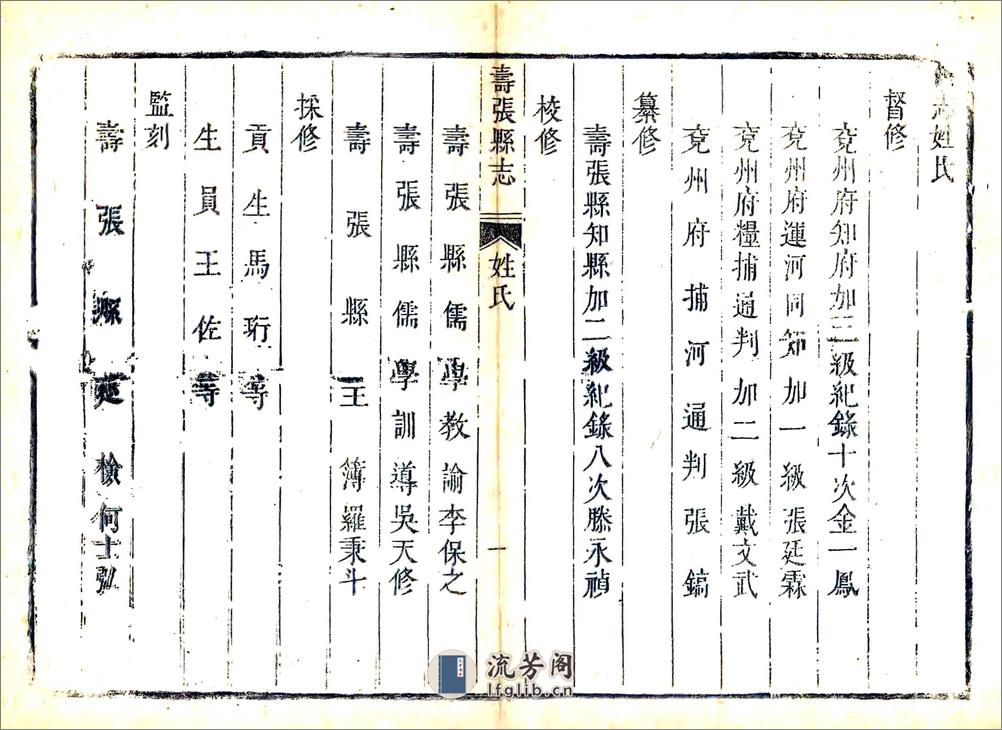 志姓氏
督修
兗州府知府加三級紀錄十次金一鳳
兗州府運河同知加一級張廷霖
兗州府糧捕通判加二級戴文武
兗州府捕河通判張鎬
纂修
壽張縣知縣加二級紀錄八次滕永禎
校修
壽張縣志 姓氏 一
壽張縣儒學教諭李保之
壽張縣儒學訓導吳天修
壽張縣主簿羅秉斗
採修
貢生馬珩等
生員王佐等
監刻
壽張縣典檢何士弘
流芳阁
lfglib.cn